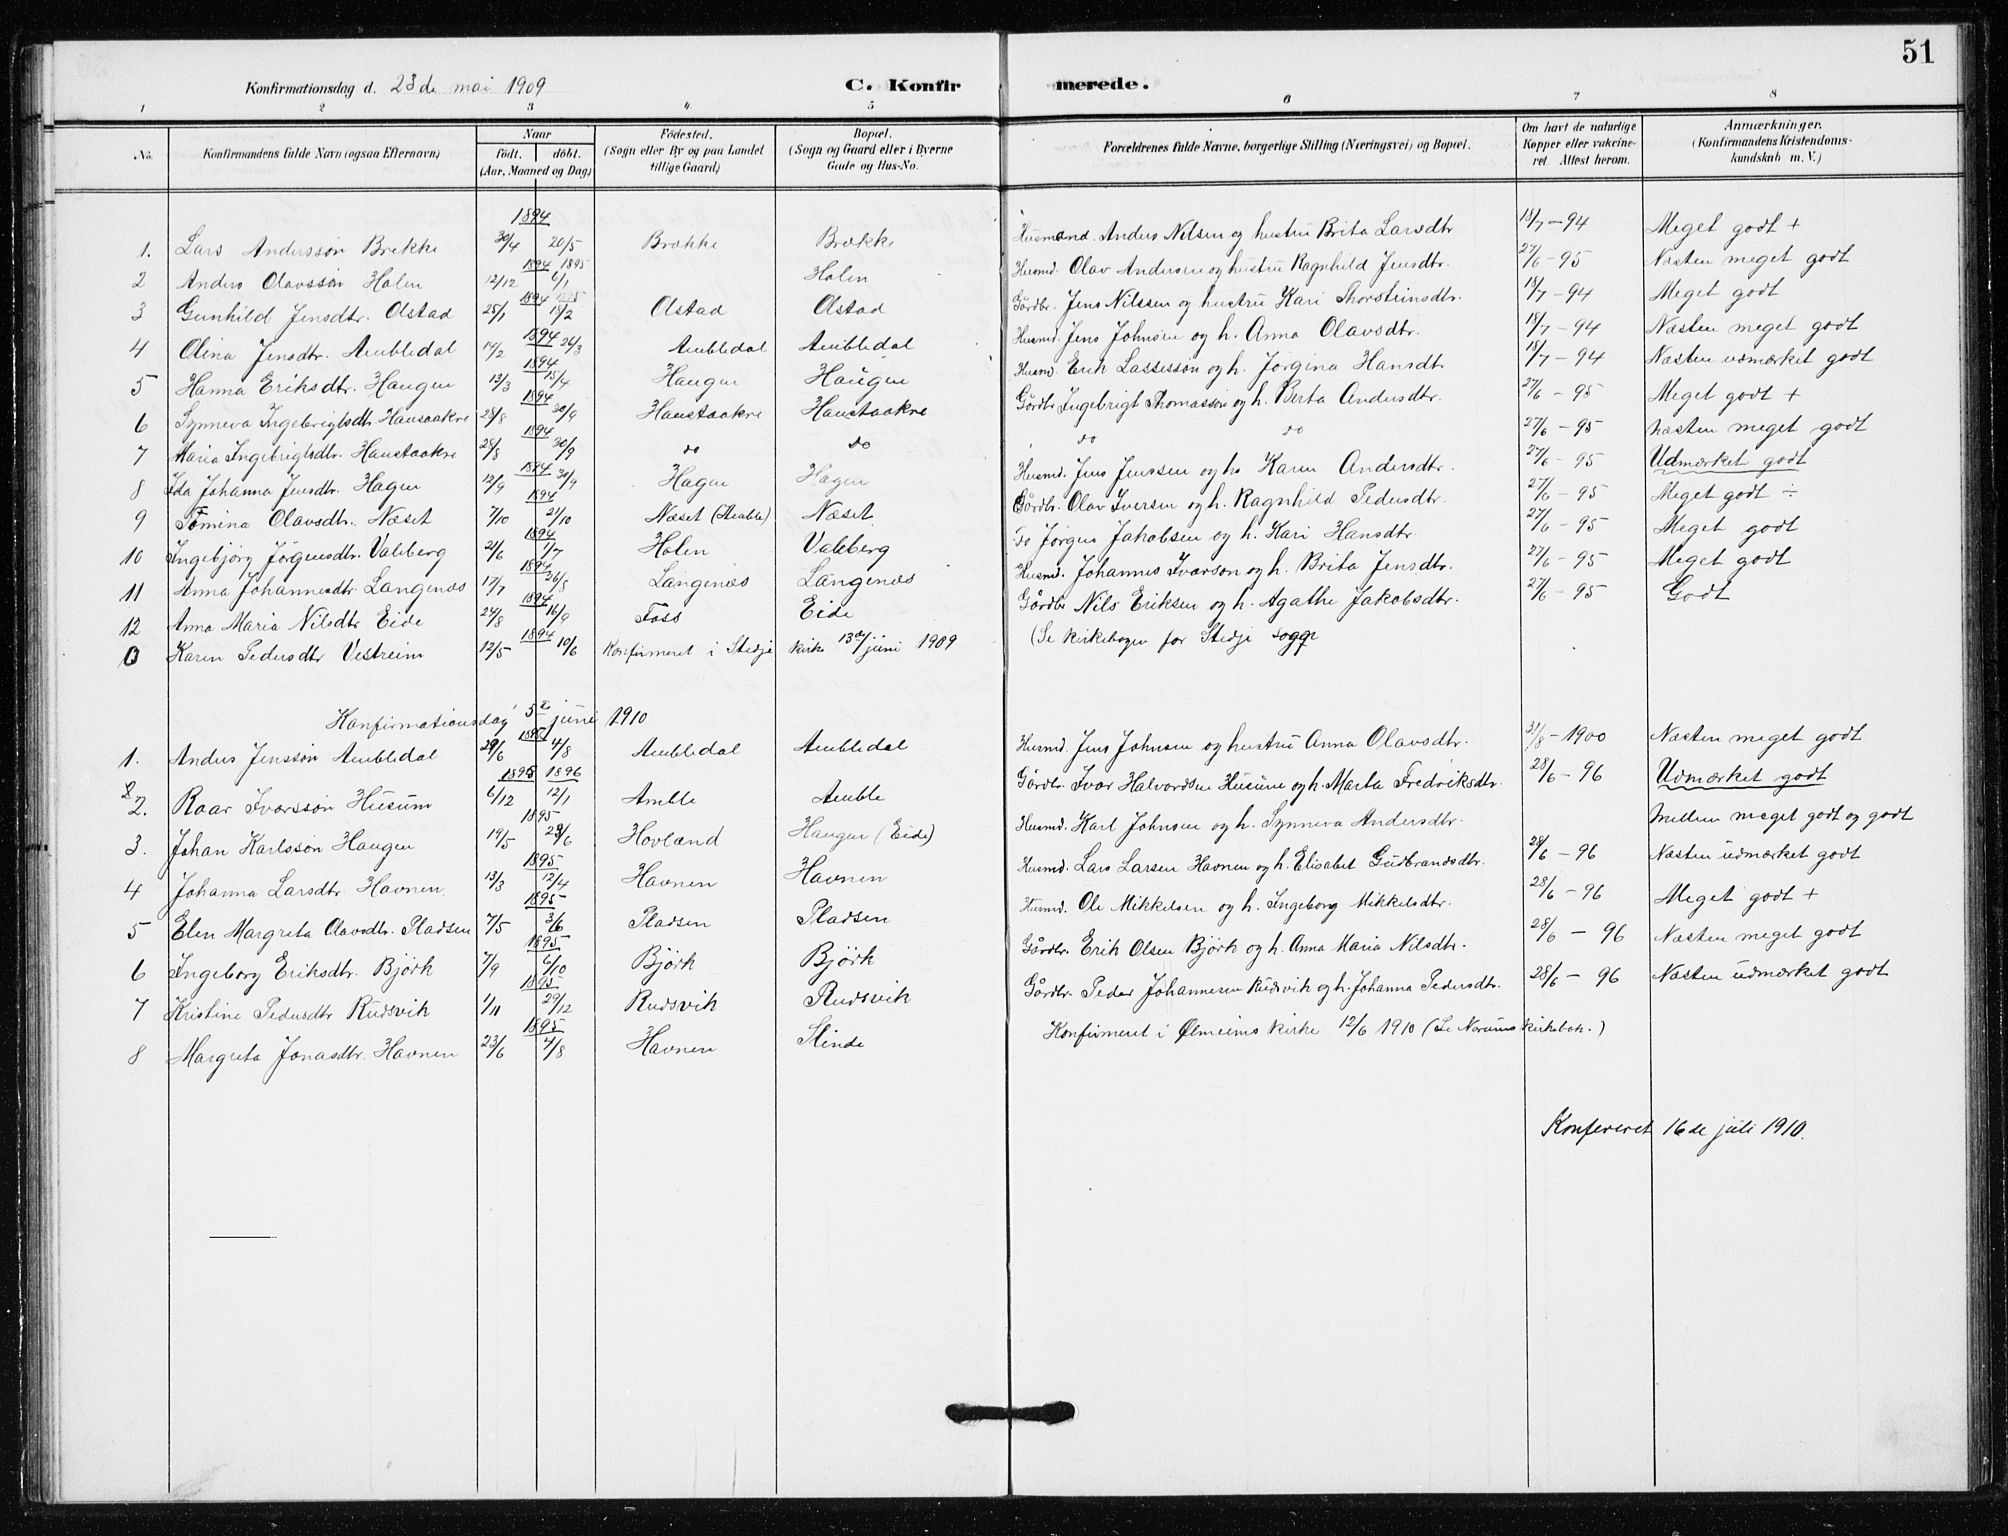 51
Konfirmationsdag d. 23de mai 1909 C. Konfirmerede.
1 2 3 4 5 6 7 8
No. Konfirmandens fulde Navn (ogsaa Efternavn) Naar født. døbt. (Aar, Maaned og Dag) Fødested. (Sogn eller By og paa Landet tillige Gaard) Bopæl. (Sogn og Gaard eller i Byerne Gade og Hus-No. Forældrenes fulde Navne, borgerlige Stilling (Næringsvei) og Bopæl. Om havt de naturlige Kopper eller vakcineret. Attest herom. Anmærkninger. (Konfirmandens Kristendomskundskab m. V.)
1894
1. Lars Anderssøn Brekke 30/4 20/5 Brække Brække Husmand. Anders Nilsen og hustru Brita Larsdtr 18/7 - 94 Meget godt +
1894 1895
2 Anders Olavssøn Holen 12/12 6/1 Holen Husmd. Olav Andersen og hustru Ragnhild Jensdtr. 27/6 - 95 Næsten meget godt
1894 1895
3 Gunhild Jensdtr. Olstad 25/1 18/2 Olstad Olstad Gårdbr. Jens Nilssen og hustru Kari Thorsteinsdtr. 18/7 - 94 Meget godt
1894
4 Olina Jensdtr. Ambledal 14/2 26/3 Ambledal Ambledal Husmd. Jens Johnsen og h. Anna Olavsdtr. 18/7 - 94 Næsten meget godt
1894
5 Hanna Eriksdtr. Haugen 12/3 15/4 Haugen Haugen Husmd. Erik Lassessøn og h. Jørgina Hansdtr 18/7 - 94 Næsten udmærket godt
1894
6 Synneva Ingebrigtsdtr Haustaakre 28/8 30/9 Haustaakre Haustaakre Gårdbr Ingebrigt Thomassøn og h. Berta Andersdtr. 27/6 - 95 Meget godt +
1894
7 Maria Ingebrigtsdtr. Haustaakre 28/8 30/9 do do do do 27/6 - 95 Næsten meget godt
1894
8 Ida Johanna Jensdtr. Hagen 12/9 30/9 Hagen Hagen Husmd. Jens Jenssen og h. Karen Andersdtr. 27/6 - 95 Udmærket godt
1894
9 Tomina Olavsdtr. Næset 7/10 21/10 Næset (Amble) Næset Gårdbr. Olav Iversen og h. Ragnhild Pedersdtr. 27/6 - 95 Meget godt ÷
1894
10 Ingebjørg Jørgensdtr. Valeberg 21/6 1/7 Holen Valeberg Do Jørgen Jakobsen og h. Kari Hansdtr. 27/6 - 95 Meget godt
1894
11 Anna Johannesdtr. Langenæs 17/7 26/8 Langenæs Langenæs Husmd. Johannes Ivarson og h. Brita Jensdtr. 27/6 - 95 Meget godt
1894
12 Anna Maria Nilsdtr Eide 24/8 16/9 Foss Eide Gårdbr Nils Eriksen og h. Agathe Jakobsdtr. 27/6 - 95 Godt
1894
0 Karen Pedersdtr Vestreim 12/5 10/6 Konfirmeret i Stedje kirke 13de/juni 1909 (Se kirkebogen for Stedje sogn
Konfirmationsdag 5te juni 1910
1895
1. Anders Jenssøn Ambledal 29/6 4/8 Ambledal Ambledal Husmd. Jens Johnsen og hustru Anna Olavsdtr. 31/8 - 1900 Næsten meget godt
1895 1896
2. Roar Ivarssøn Husum 6/12 12/1 Amble Amble Gårdbr. Ivar Halvordsen Husum og h. Marta Fredriksdtr. 28/6 - 96 Udmærket godt
1895
3. Johan Karlssøn Haugen 19/5 23/6 Hovland Haugen (Eide) Husmd. Karl Johnsen og h. Synneva Andersdtr. Mellem meget godt og godt
1895
4 Johanna Larsdtr Havnen. 13/3 12/4 Havnen Havnen Husmd. Lars Larsen Havnen og h. Elisabet Gudbrandsdtr. 28/6 - 96 Næsten udmærket godt
1895
5 Elen Margreta Olavsdtr. Pladsen 7/5 3/6 Pladsen Pladsen Husmd. Ole Mikkelsen og h. Ingeborg Mikkelsdtr. 28/6 - 96 Meget godt +
1895
6 Ingeborg Eriksdtr. Bjørk 7/9 6/10 Bjørk Bjørk Gårdbr. Erik Olsen Bjørk og h. Anna Maria Nilsdtr. 28/6 - 96 Næsten meget godt
1895
7 Kristine Pedersdtr Rudsvik 1/11 29/12 Rudsvik Rudsvik Gårdbr. Peder Johannesen Rudsvik og h. Johanna Pedersdtr. 28/6 - 96 Næsten udmærket godt
1895
8 Margreta Jonasdtr. Havnen 23/6 4/8 Havnen Slinde Konfirmeret i Ølmeims kirke 12/6 1910 (Se Norums kirkebok.)
Konfereret 16de juli 1910.